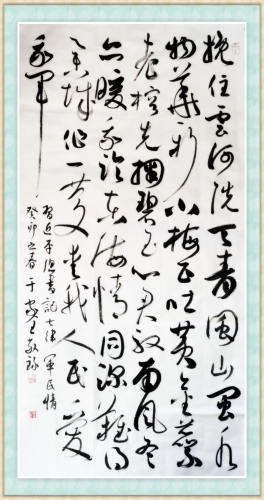 挽住雲河洗天青闽山闽水
物華新小梅正吐黄金蕊
老榕先掬碧玉心君驭南風冬
亦暖我临东海情同深難得
举城作一庆爱我人民爱
我军
習近平總書記七律 軍民情
癸卯之春于